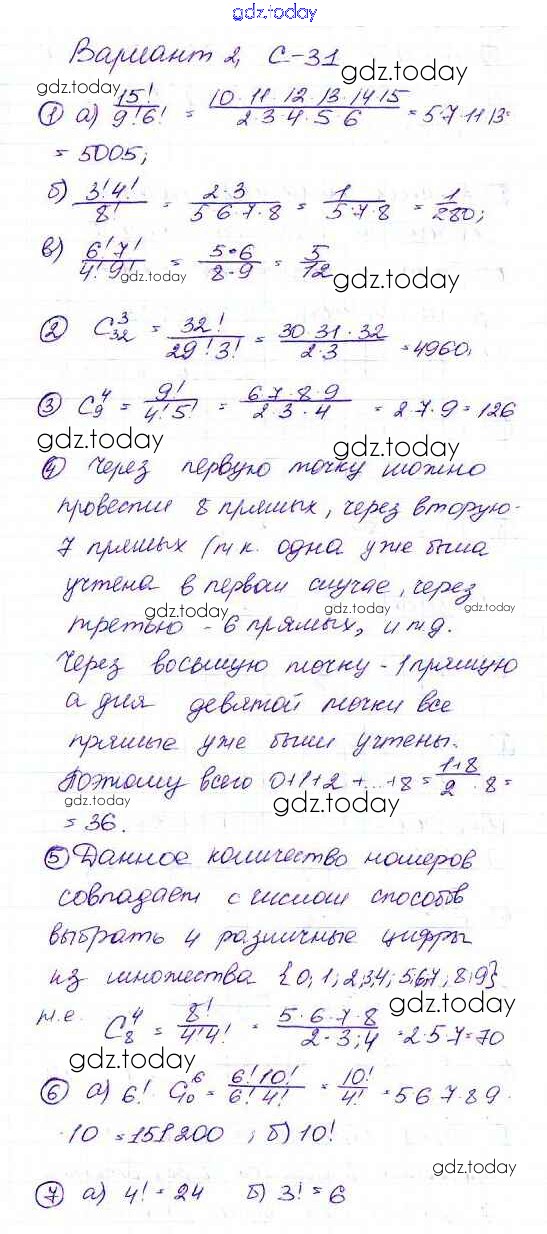 gdz.today
Вариант 2, С-31
gdz.today
gdz.today
① а) 15!/9!6! = 10·11·12·13·14·15/2·3·4·5·6 = 5·7·11·13=
= 5005;
б) 3!4!/8! = 2·3/5·6·7·8 = 1/5·7·8 = 1/280;
в) 6!7!/4!9! = 5·6/8·9 = 5/12
gdz.today
gdz.today
② C³₃₂ = 32!/29!3! = 30·31·32/2·3 = 4960.
gdz.today
③ C⁴₉ = 9!/4!5! = 6·7·8·9/2·3·4 = 2·7·9 = 126
gdz.today
gdz.today
④ Через первую точку можно
провести 8 прямых, через вторую-
7 прямых (т.к. одна уже была
учтена в первом случае, через
gdz.today
gdz.today
третью - 6 прямых, и т.д.
Через восьмую точку - 1 прямую
а для девятой точки все
прямые уже были учтены.
Поэтому всего 0+1+2+...+8 = 1+8/2 · 8 =
gdz.today
gdz.today
= 36.
⑤ Данное количество номеров
совпадает с числом способов
выбрать 4 различные цифры
из множества {0,1,2,3,4,5,6,7,8,9}
gdz.today
т.е. C⁴₈ = 8!/4!4! = 5·6·7·8/2·3·4 = 2·5·7=70
gdz.today
⑥ а) 6! · C⁶₁₀ = 6!10!/6!4! = 10!/4! = 5·6·7·8·9·
·10 = 151200; б) 10!
gdz.today
⑦ а) 4! = 24 б) 3! = 6